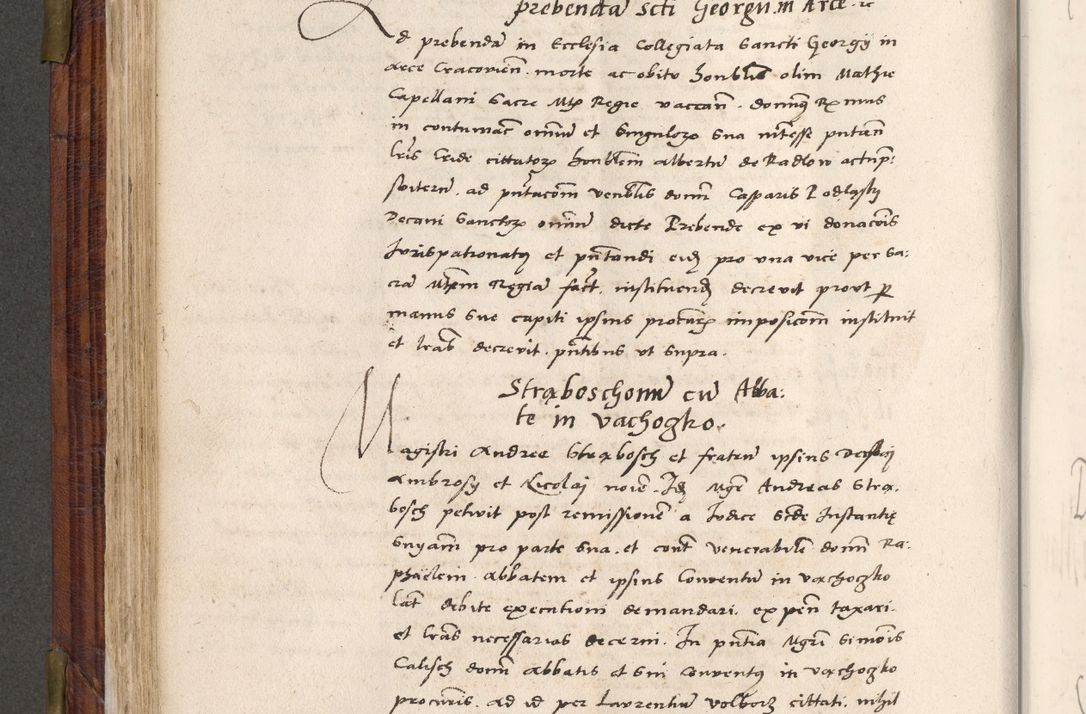 prebenda Scti Georgii in Arce. rc
Ad prebendā in Ecclesia Collegiata Sancti Georgÿ in
Arce Cracovień. morte ac obitu honblis olim Mathie
Capellani Sacre Mtis Regie vaccań. domnus
in contumac omniū et Singulorz Sua intesse putań
lris Cride cittatorz honblem Albertū de Radlow
ad pntacom venblis domi Casparis Podląsky
Decani Sanctorz omniū dicte Prebende ex vi donacois
Jurispatronatus et pntandi eidem pro una vice per Sa:
crā Mtem Regiā fact. instituend decrevit prout per
manus Sue capiti ipsius procuris imposicom instituit
et lras decrevit. pntibus ut Supra.
Strąboschonū cū Abba:
te in Vachogko.
Magistri Andree Strąbosch et fratrū ipsius
Ambrosÿ et Nicolaj noie. Idem Mgr Andreas Strą.
bosch petivit post remissionē a Judice Scde Instantię
Snyam pro parte Sua. et cont venerabilē domi Ra:
phaelem abbatem et ipsius Conventū in Vachogko
lat debite executioni demandari. expen taxari.
et lras necessarias decerni. In pntia Mgri Simois
Calisch domi abbatis et Sui Conventus in Vachogko
procuris. ad id per Laurentiū cittati. nihil